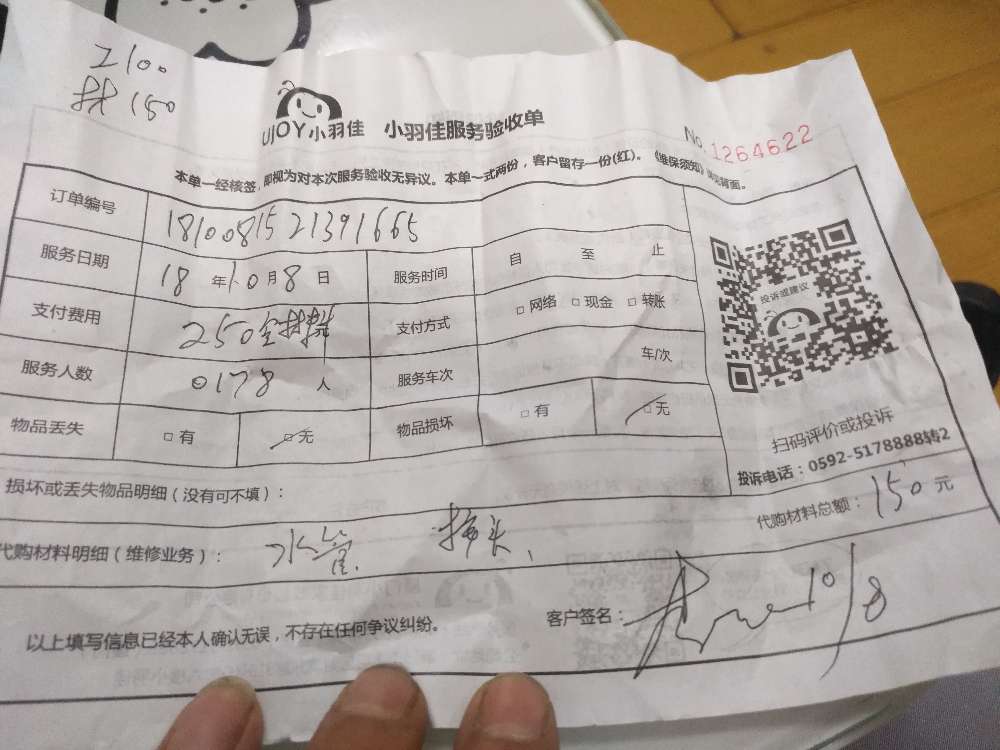 2100
材150
UJOY小羽佳 小羽佳服务验收单
No.1264622
本单一经核签，即视为对本次服务验收无异议。本单一式两份，客户留存一份(红)。《维保须知》详见背面。
订单编号 181008152139​1665
服务日期 18 年 10 月 8 日 服务时间 自 至 止
支付费用 250 支付方式 □ 网络 □ 现金 □ 转账
服务人数 0178 人 服务车次 车/次
物品丢失 □ 有 □ 无 物品损坏 □ 有 □ 无
投诉或建议
扫码评价或投诉
投诉电话：0592-5178888转2
损坏或丢失物品明细（没有可不填）：
代购材料明细（维修业务）：水管、接头、 代购材料总额：150 元
以上填写信息已经本人确认无误，不存在任何争议纠纷。 客户签名： 10/8